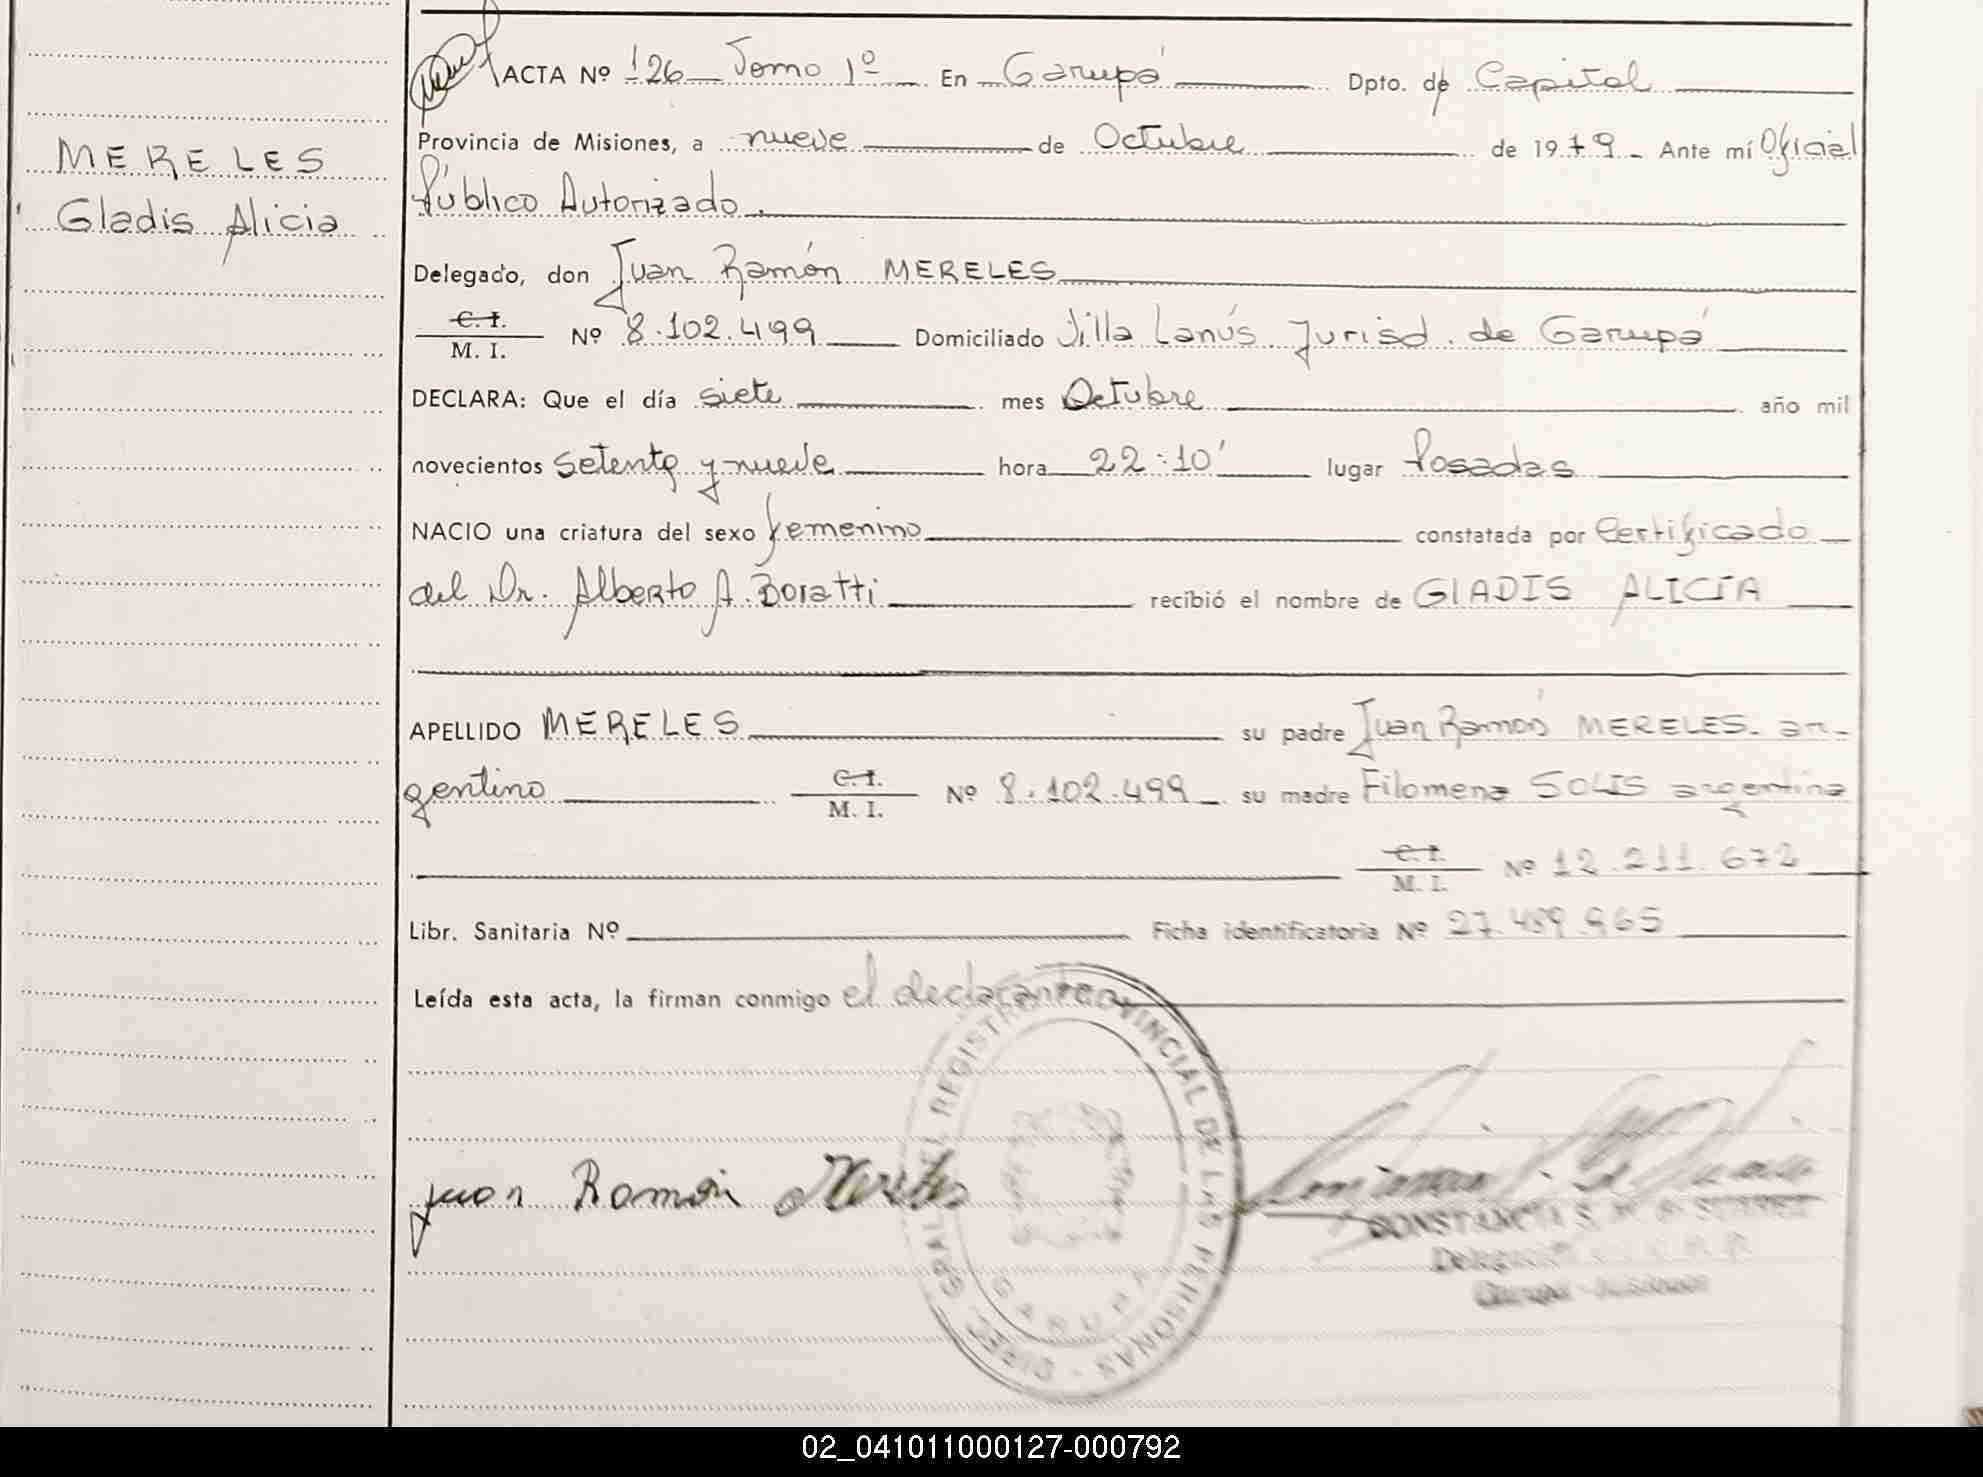 MERELES
Gladis Alicia
ACTA Nº 126 Tomo 1º En Garupá Dpto. de Capital
Provincia de Misiones, a nueve de Octubre de 1979 - Ante mí Oficial
Público Autorizado.
Delegado, don Juan Ramón MERELES
C. I.
M. I. Nº 8.102.499 Domiciliado Villa Lanús Jurisd. de Garupá
DECLARA: Que el día siete mes Octubre año mil
novecientos setenta y nueve hora 22:10' lugar Posadas
NACIO una criatura del sexo femenino constatada por Certificado
del Dr. Alberto A. Boratti recibió el nombre de GLADIS ALICIA
APELLIDO MERELES su padre Juan Ramón MERELES. ar-
gentino C. I.
M. I. Nº 8.102.499 su madre Filomena SOLIS argentina
C. I.
M. I. Nº 12.211.672
Libr. Sanitaria Nº Ficha identificatoria Nº 27.489.965
Leída esta acta, la firman conmigo el declarante
Juan Ramón Mereles
DIREC. GRAL. DEL REGISTRO PROVINCIAL DE LAS PERSONAS -
GARUPA
CONSTANCIA S.
02_041011000127-000792